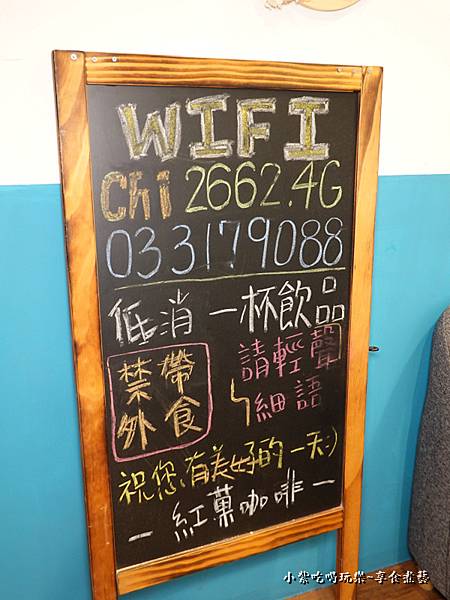 WIFI
Chi 2662.4G
033179088
低消一杯飲品
禁帶
外食
請輕聲
細語
祝您有美好的一天:)
-紅菓咖啡-
小紫吃喝玩樂-享食在藝